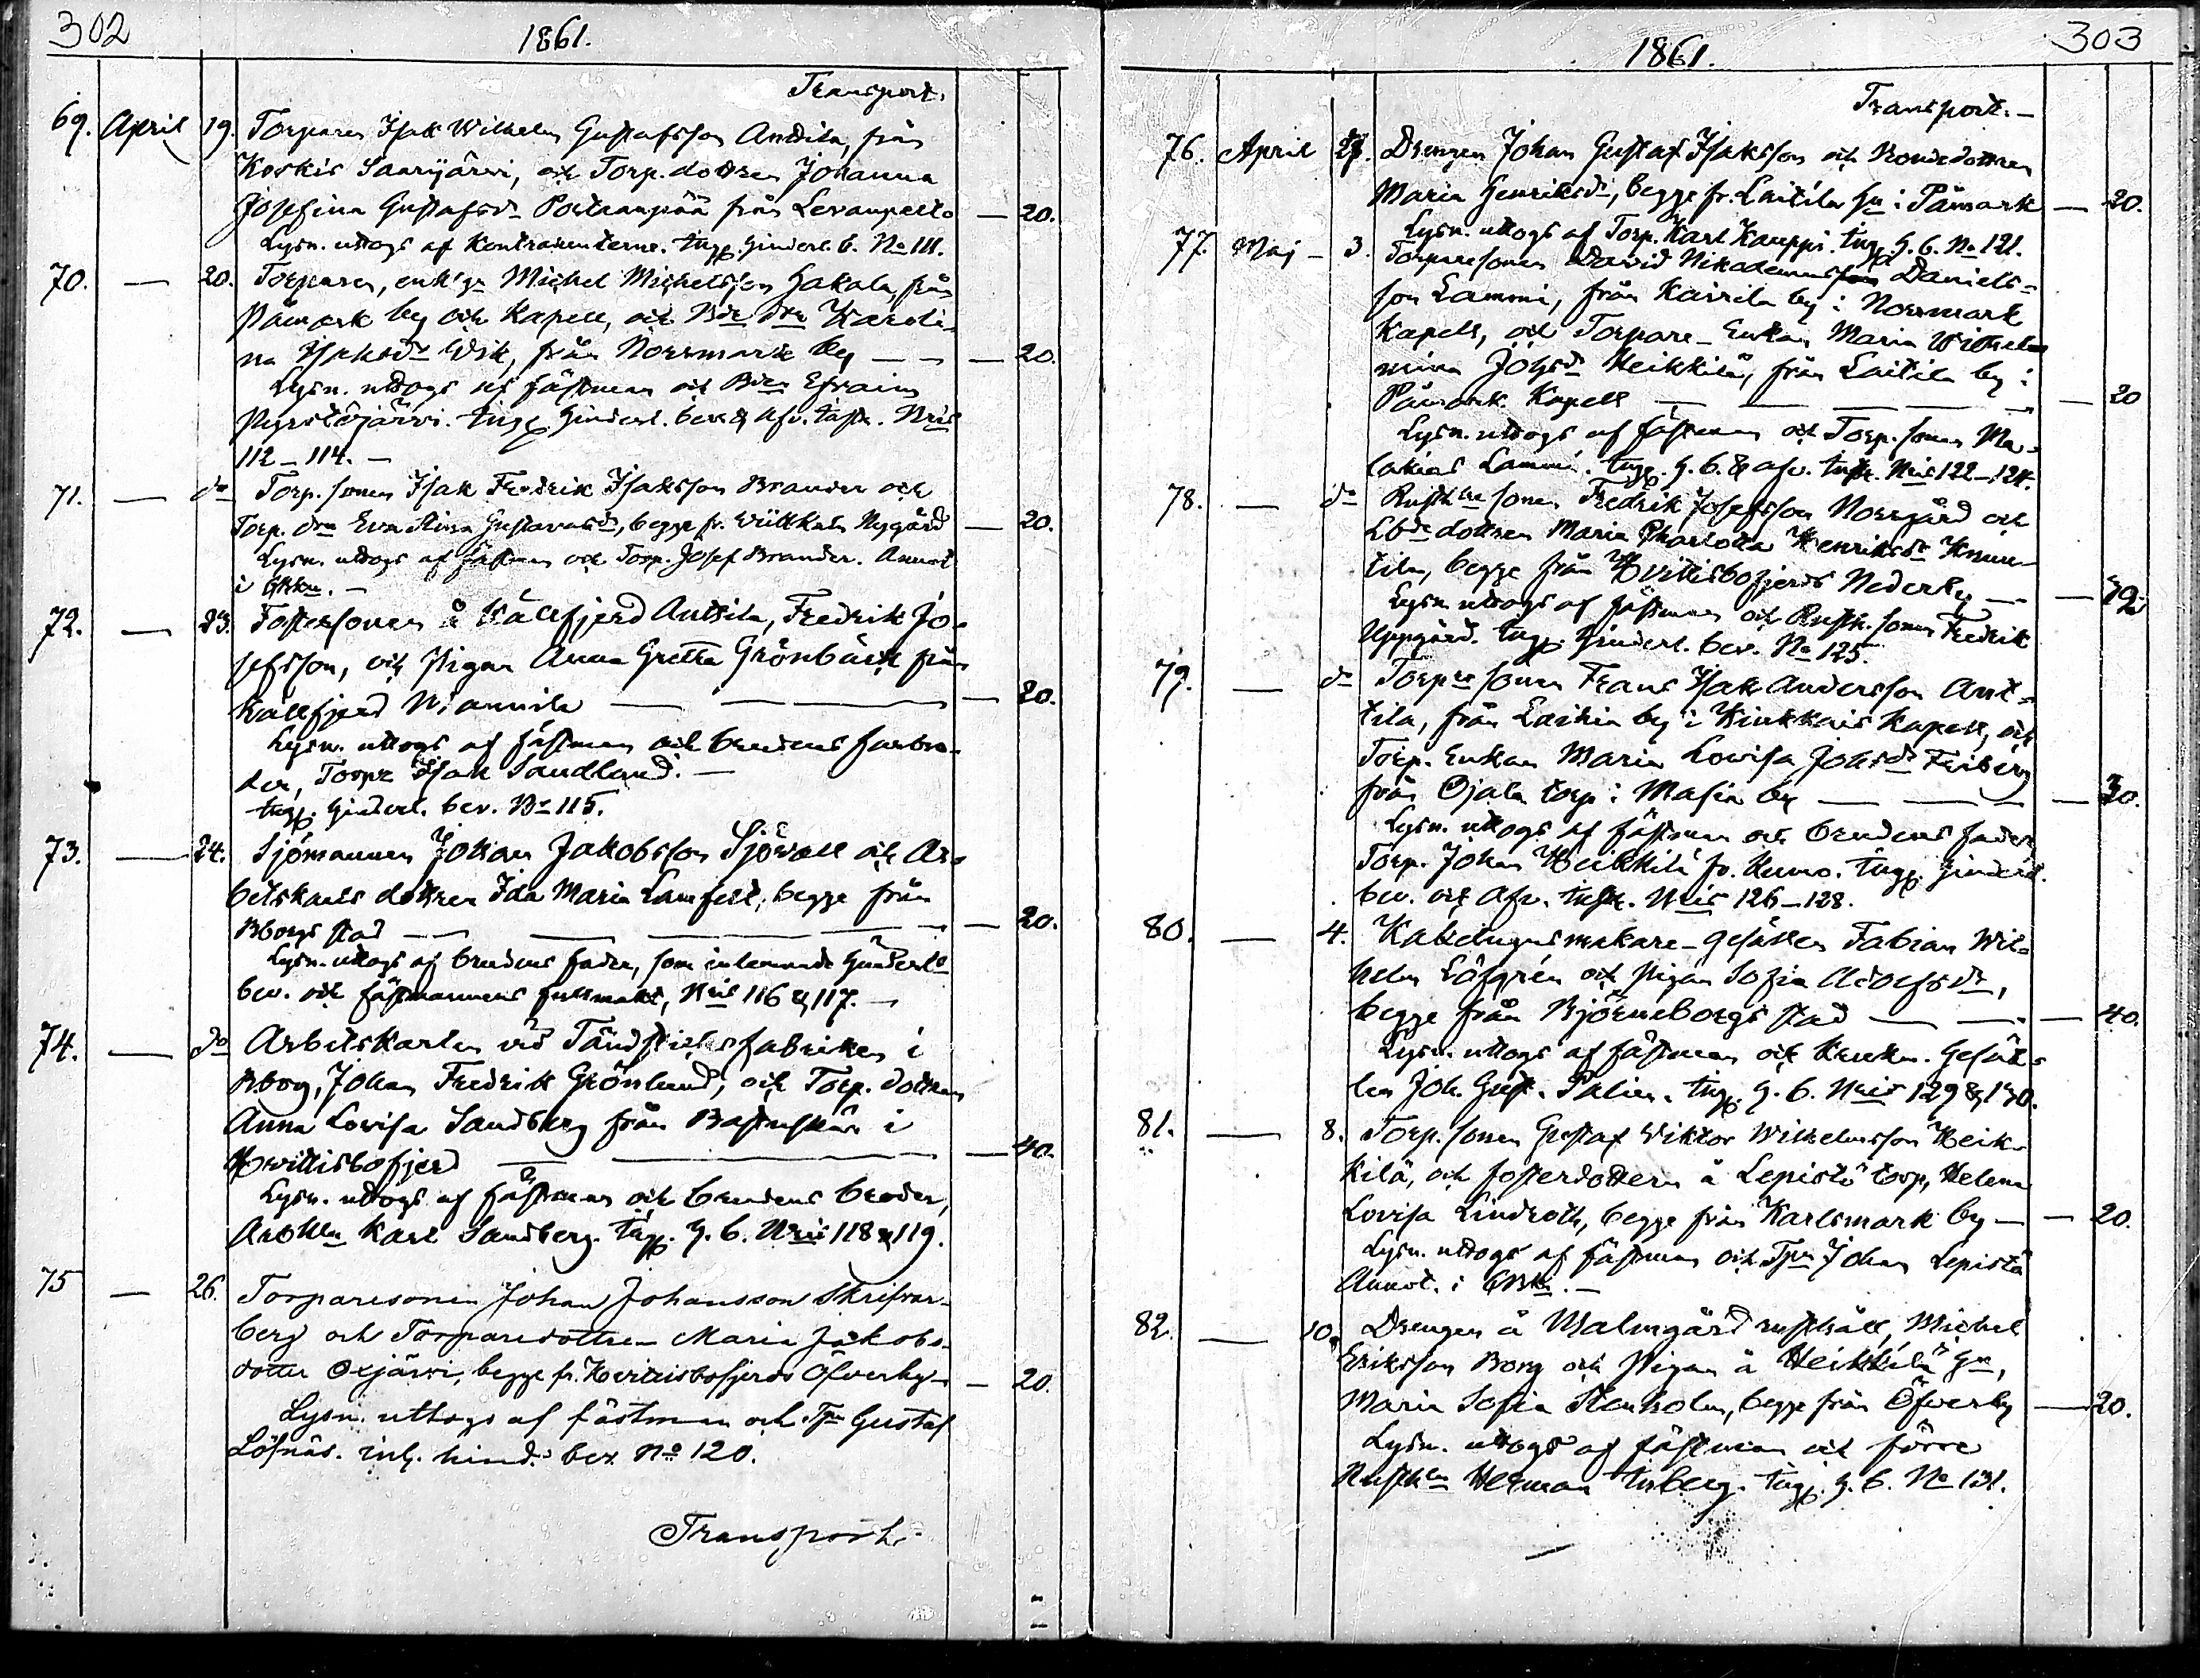 302
1861.
Transport.
69. April 19. Torparen Isak Wilhelm Gustafsson Anttila, från
Koskis Saarijärvi, och Torp. dottren Johanna
Josefina Gustafsdr Porteanpää från Levanpelto — 20.
Lysn. uttogs af Kontrahenterne. Ingp. Hinderl. b. No 111.
70. — 20. Torparen, enkl'gn Michel Michelsson Hakala, från
Påmark by och Kapell, och Bde dtr Karoli-
na Isaksdr Wik, från Norrmark by — — — 20.
Lysn. uttogs af fästman och Bden Efraim
112 — 114. —
71. — do Torp. sonen Isak Fredrik Isaksson Brander och
Torp. dtn Eva Stina Gustavusdr, begge fr. Nygård — 20.
Lysn. uttogs af fästman och Torp. Josef Brander. Annot
i
72. — 23. Fostersonen å Källfjerd Anttila, Fredrik Jo-
sefsson, och Pigan Anna Gretta Grönbäck från
Källfjerd Niannila — — — 20.
Lysn. uttogs af fästman och brudens farbro-
der, Torpr Isak Sandlund. —
Ingp. Hinderl. bev. No 115.
73. — 24. Sjömannen Johan Jakobsson Sjövall och Ar-
betskarls dottren Ida Maria Lamfelt, begge från
Bborgs stad — — — — 20.
Lysn. uttogs af brudens fader, som inlemnade Hinderls
bev. och fästmannens fullmakt, Nris 116 & 117. —
74. — do Arbetskarlen vid Tändsticksfabriken i
Bborg, Johan Fredrik Grönlund, och Torp. dottren
Anna Lovisa Sandberg från Bastuskär i
Hvittisbofjerd — — — 40.
Lysn. uttogs af fästman och brudens broder,
Arbkln Karl Sandberg. Ingp. H. b. Nris 118 & 119.
75 — 26. Torparesonen Johan Johansson Skrifvar-
berg och Torparedottren Maria Jakobs-
dotter Oxjärvi, begge fr. Hvittisbofjerds Öfverby — — 20.
Lysn. uttogs af fästman och Tpn Gustaf
Löfnäs. inl. hind. bev. No 120.
Transport.
303
1861.
Transport. —
76. April 27. Drengen Johan Gustaf Isaksson och Bondedottren
Maria Henriksdr, begge fr. Laitila hn i Påmark — 20.
Lysn. uttogs af Torp. Karl Kauppi. Ingp. H. b. No 121.
77. Maj — 3. Torparesonen David Nikodemusson Daniels-
son Lammi, från Kairila by i Norrmark
Kapell, och Torpare-Enkan Maria Wilhel-
mina Johsdr Heikkilä, från Laitila by i
Påmark Kapell — — — — 20
Lysn. uttogs af fästman och Torp. sonen Ma-
lakias Lammi. Ingp. H. b. & afv. Nris 122 — 124.
78. — do Rusthrs sonen Fredrik Josefsson Norrgård och
Lbde dottren Maria Charlotta Henriksdr Knuu-
tila, begge från Hvittisbofjerds Nederby — —
Lysn. uttogs af fästman och Rusth. sonen Fredrik
Uppgård. Ingp. Hinderl. bev. No 125.
79. — do Torpre sonen Frans Isak Andersson Ant-
tila, från Laihia by i Kiukkais Kapell, och
Torp. Enkan Maria Lovisa Johsdr Friberg
från Ojala torp i Masia by — — — 30.
Lysn. uttogs af fästman och brudens fader
Torp. Johan Heikkilä fr. Kumo. Ingp. Hinderl.
bev. och Afv. Nris 126 — 128.
80. — 4. Kakelugnsmakare-Gesällen Fabian Wil-
helm Löfgrén och Pigan Sofia Adolfsdr,
begge från Björneborgs stad — — — 40.
Lysn. uttogs af fästman och Krukm. Gesäl-
len Joh. Gust. Palin. Ingp. H. b. Nris 129 & 130.
81. — 8. Torp. sonen Gustaf Wiktor Wilhelmsson Heik-
kilä, och fosterdottren å Lepistö torp, Helena
Lovisa Lindroth, begge från Karlsmark by — — 20.
Lysn. uttogs af fästman och Tpn Johan Lepistö
Annot. i
82. — 10. Drengen å Malmgård rusthåll, Michel
Eriksson Borg och Pigan å Heikkilä hn,
Maria Sofia Stenholm, begge från Öfverby — 20.
Lysn. uttogs af fästman och förre
Rusthln Herman Ingp. H. b. No 131.